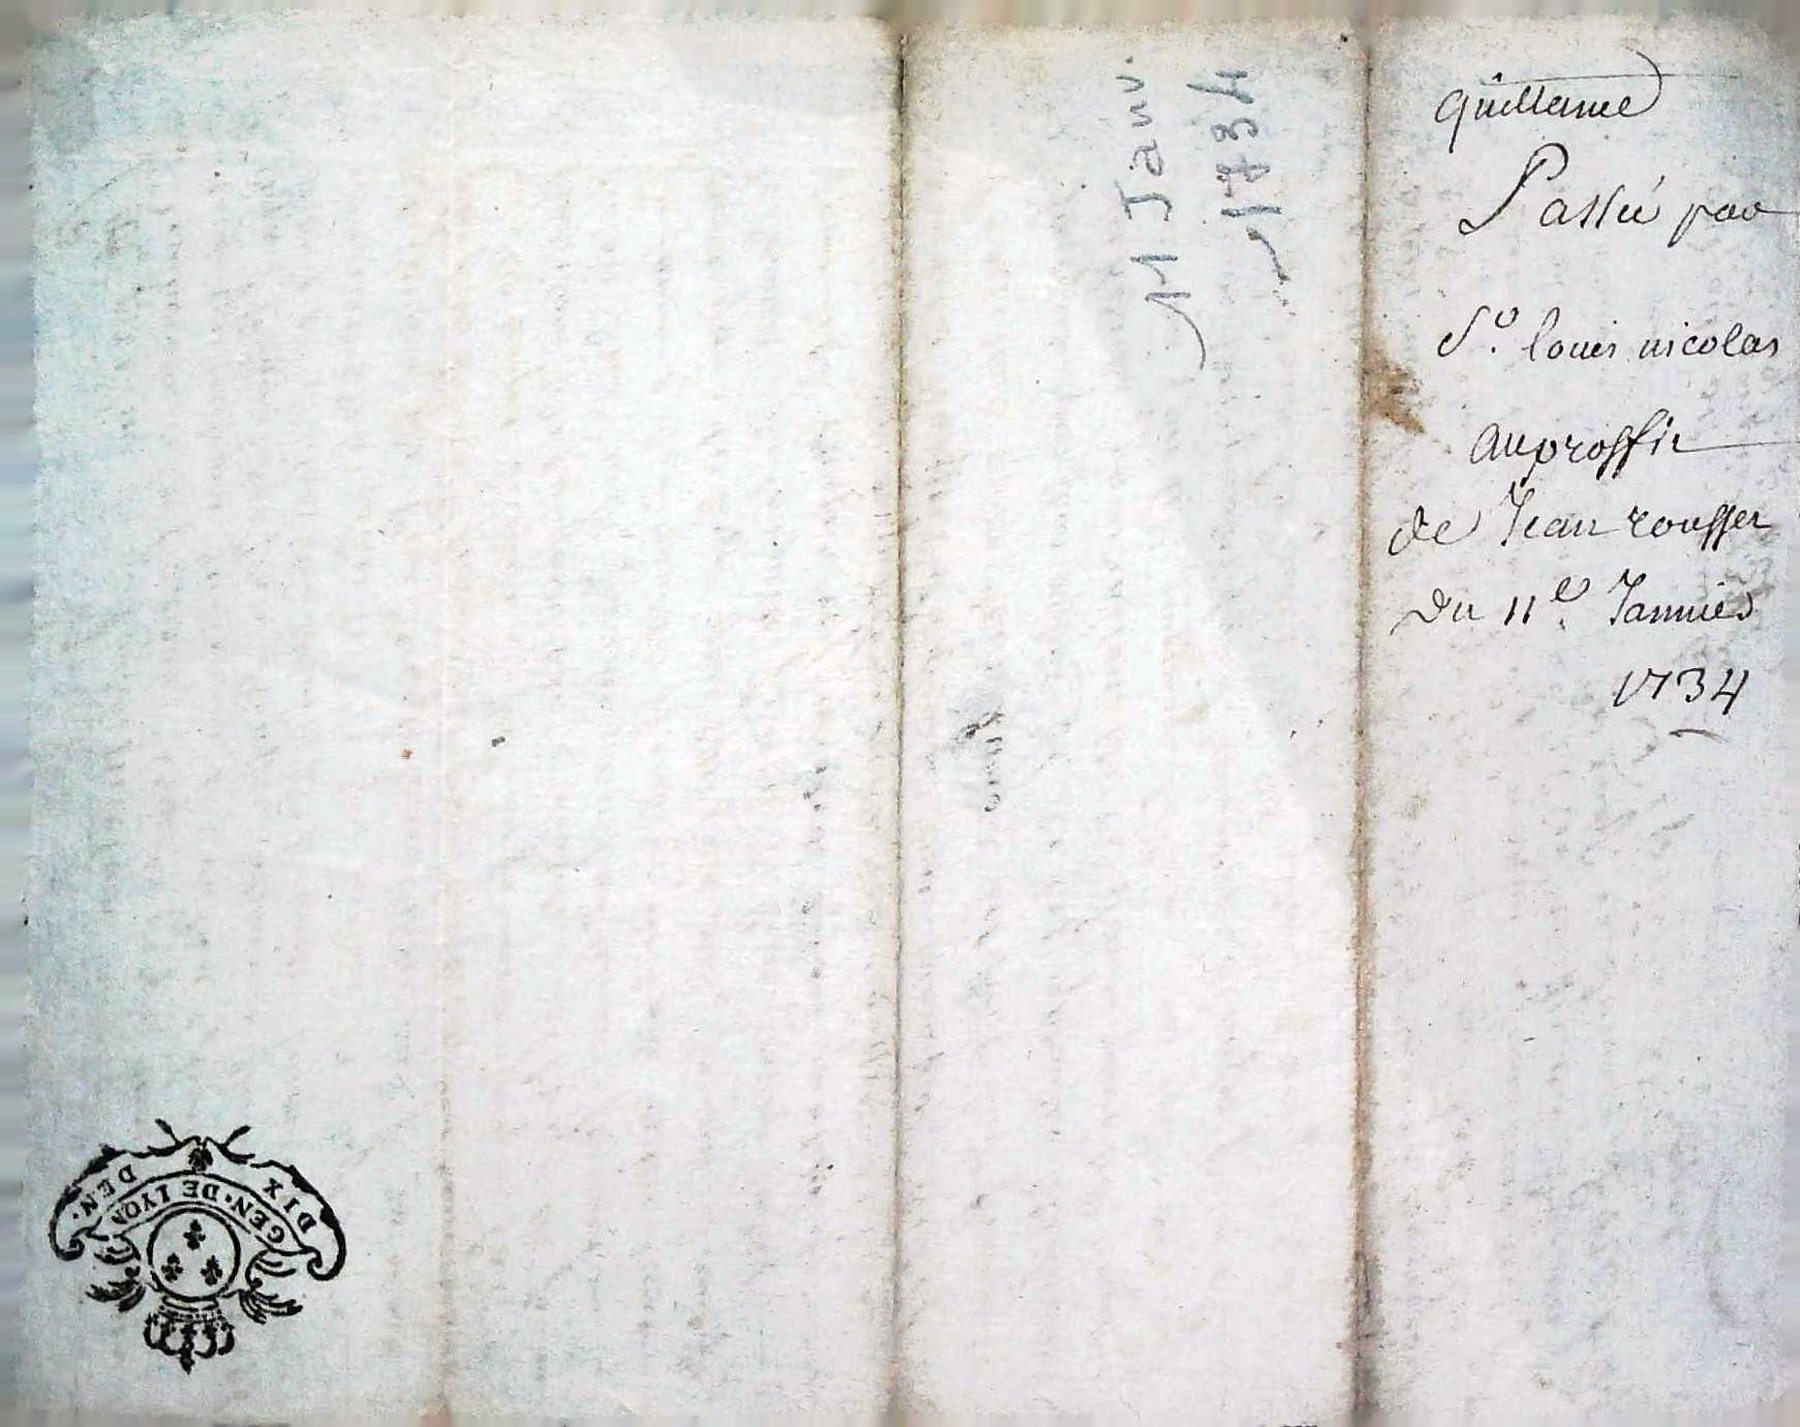 quittance
Passée par
Sr. louis nicolas
au proffit
de Jean rousset
du 11e. Januier
1734
11 Janv.
1734
DIX DEN.
GEN. DE LYON